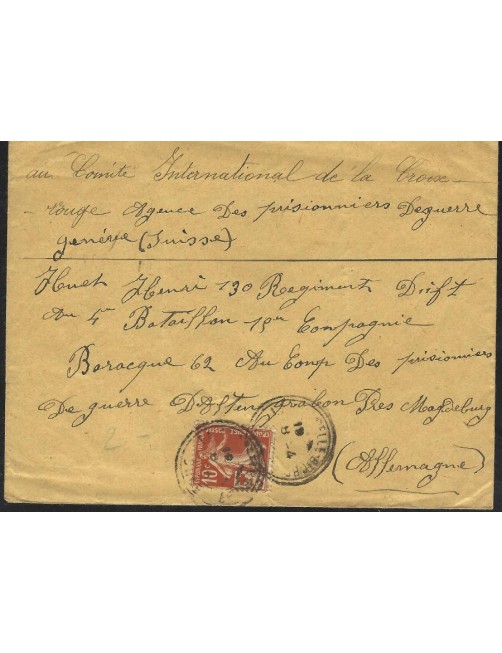 au Comité International de la Croix-
rouge Agence Des prisionniers Deguerre
genévre (Suisse)
Huet Henri 130 Regiment Dinft
Au 4e Bataillon 1ere Compagnie
Baracque 62 Au Comp Des prisioniers
De guerre DAltengrabon Pres Magdeburg
(Allemagne)
10
2